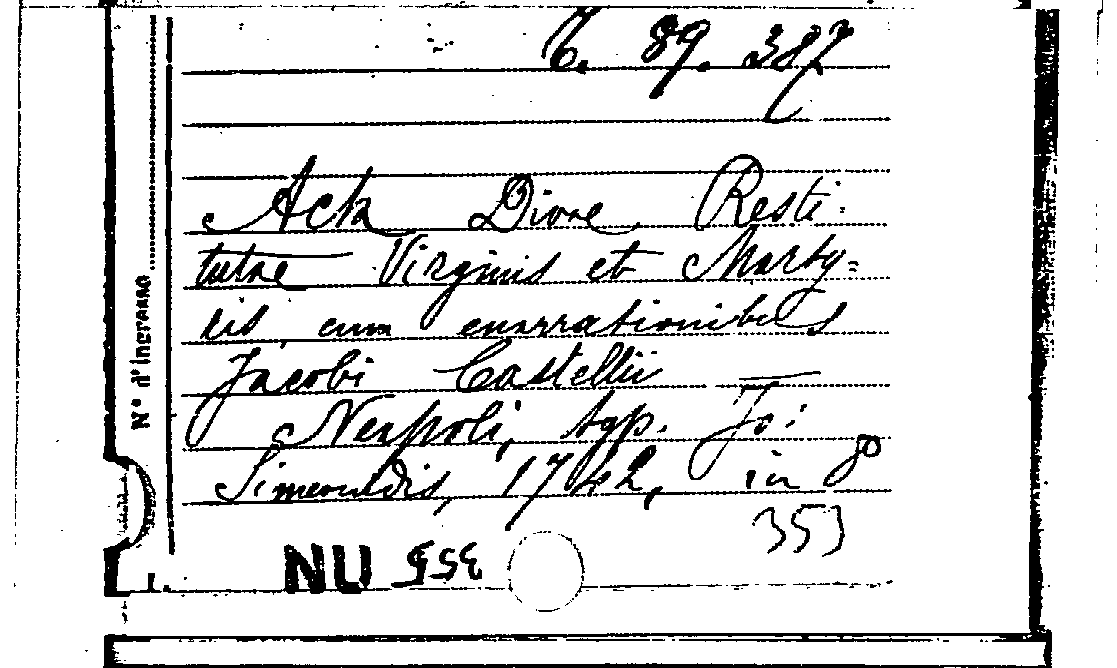 6. 89. 387
Acta Divae Resti-
tutae Virginis et Marty=
ris cum enarrationibus
Jacobi Castellii
Neapoli, typ. Jo:
Simeonidis, 1742, in 8º
353
NU 355
N° d'ingresso